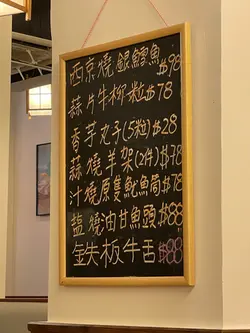 西京燒銀鱈魚$98
蒜片牛柳粒$78
香芋丸子(5粒)$28
蒜燒羊架(2件)$78
汁燒原隻魷魚筒$78
盐燒油甘魚頭$88
鉄板牛舌$88